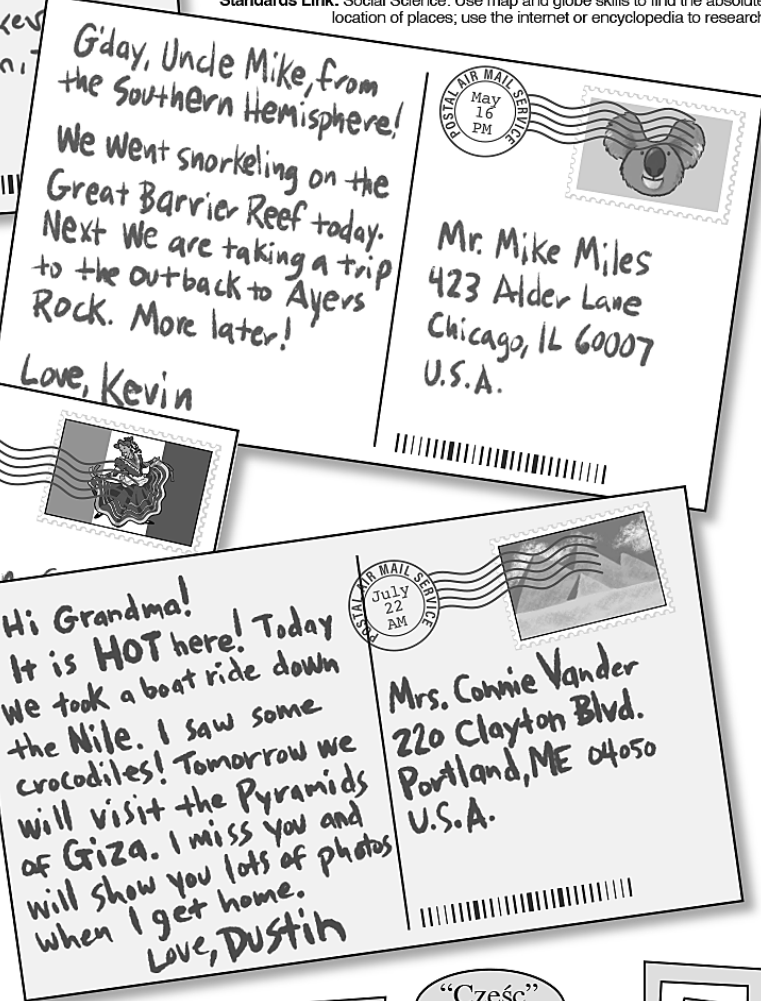 Standards Link: Social Science: Use map and globe skills to find the absolute
location of places; use the internet or encyclopedia to research
G'day, Uncle Mike, from
the Southern Hemisphere!
We went snorkeling on the
Great Barrier Reef today.
Next we are taking a trip
to the outback to Ayers
Rock. More later!
Love, Kevin
POSTAL AIR MAIL SERVICE
May
16
PM
Mr. Mike Miles
423 Alder Lane
Chicago, IL 60007
U.S.A.
Hi Grandma!
It is HOT here! Today
we took a boat ride down
the Nile. I saw some
crocodiles! Tomorrow we
will visit the Pyramids
of Giza. I miss you and
will show you lots of photos
when I get home.
Love, Dustin
POSTAL AIR MAIL SERVICE
July
22
AM
Mrs. Connie Vander
220 Clayton Blvd.
Portland, ME 04050
U.S.A.
"Cześć"